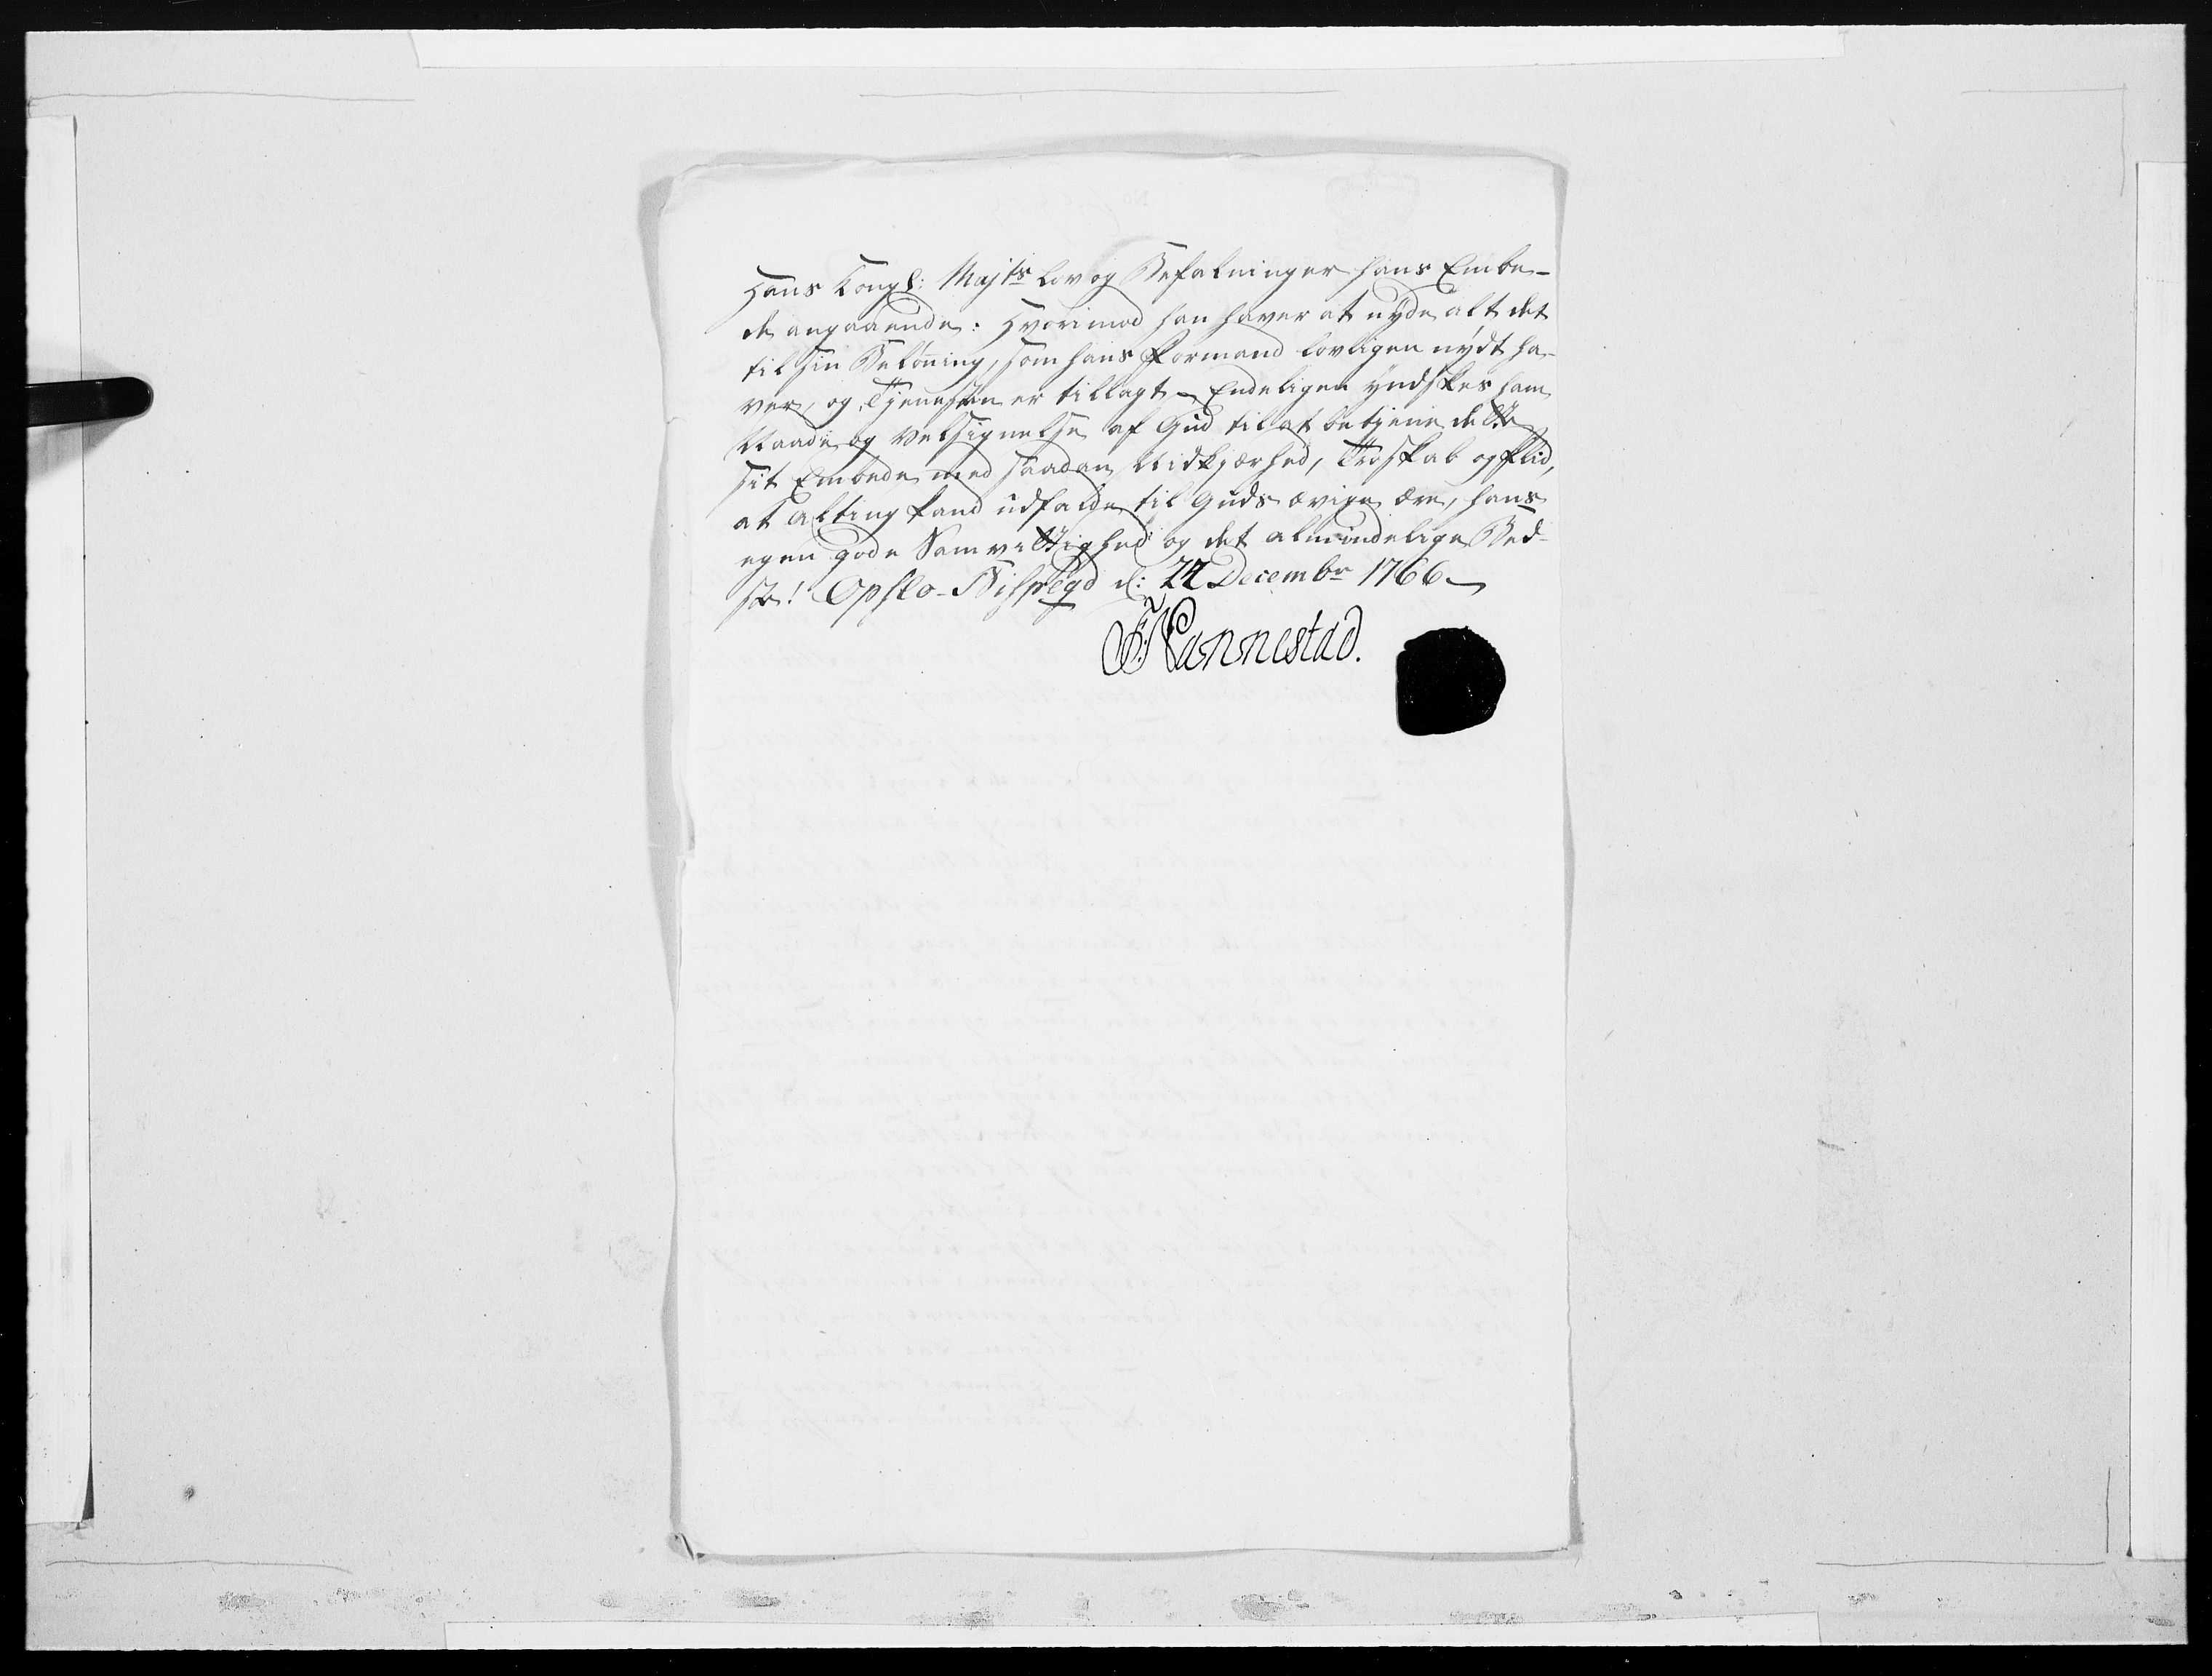 Hans Kongl: Majts Lov og Befalninger hans Embe-
de angaaende: Hvorimod han haver at nyde alt det
til sin Belöning, som hans Formand lovligen nydt ha-
ver, og Tjenesten er tillagt – Endeligen yndskes ham
Naade og Velsignelse af Gud til at betjene dette
sit Embede med saadan Nidkjærhed, Troskab og Flid,
at alting kand udfalde til Guds ævige ære, hans
egen gode Samvittighed og det almindelige Bed-
ste! Opslo-Bispegd d: 24 Decembr 1766
F: Nannestad.